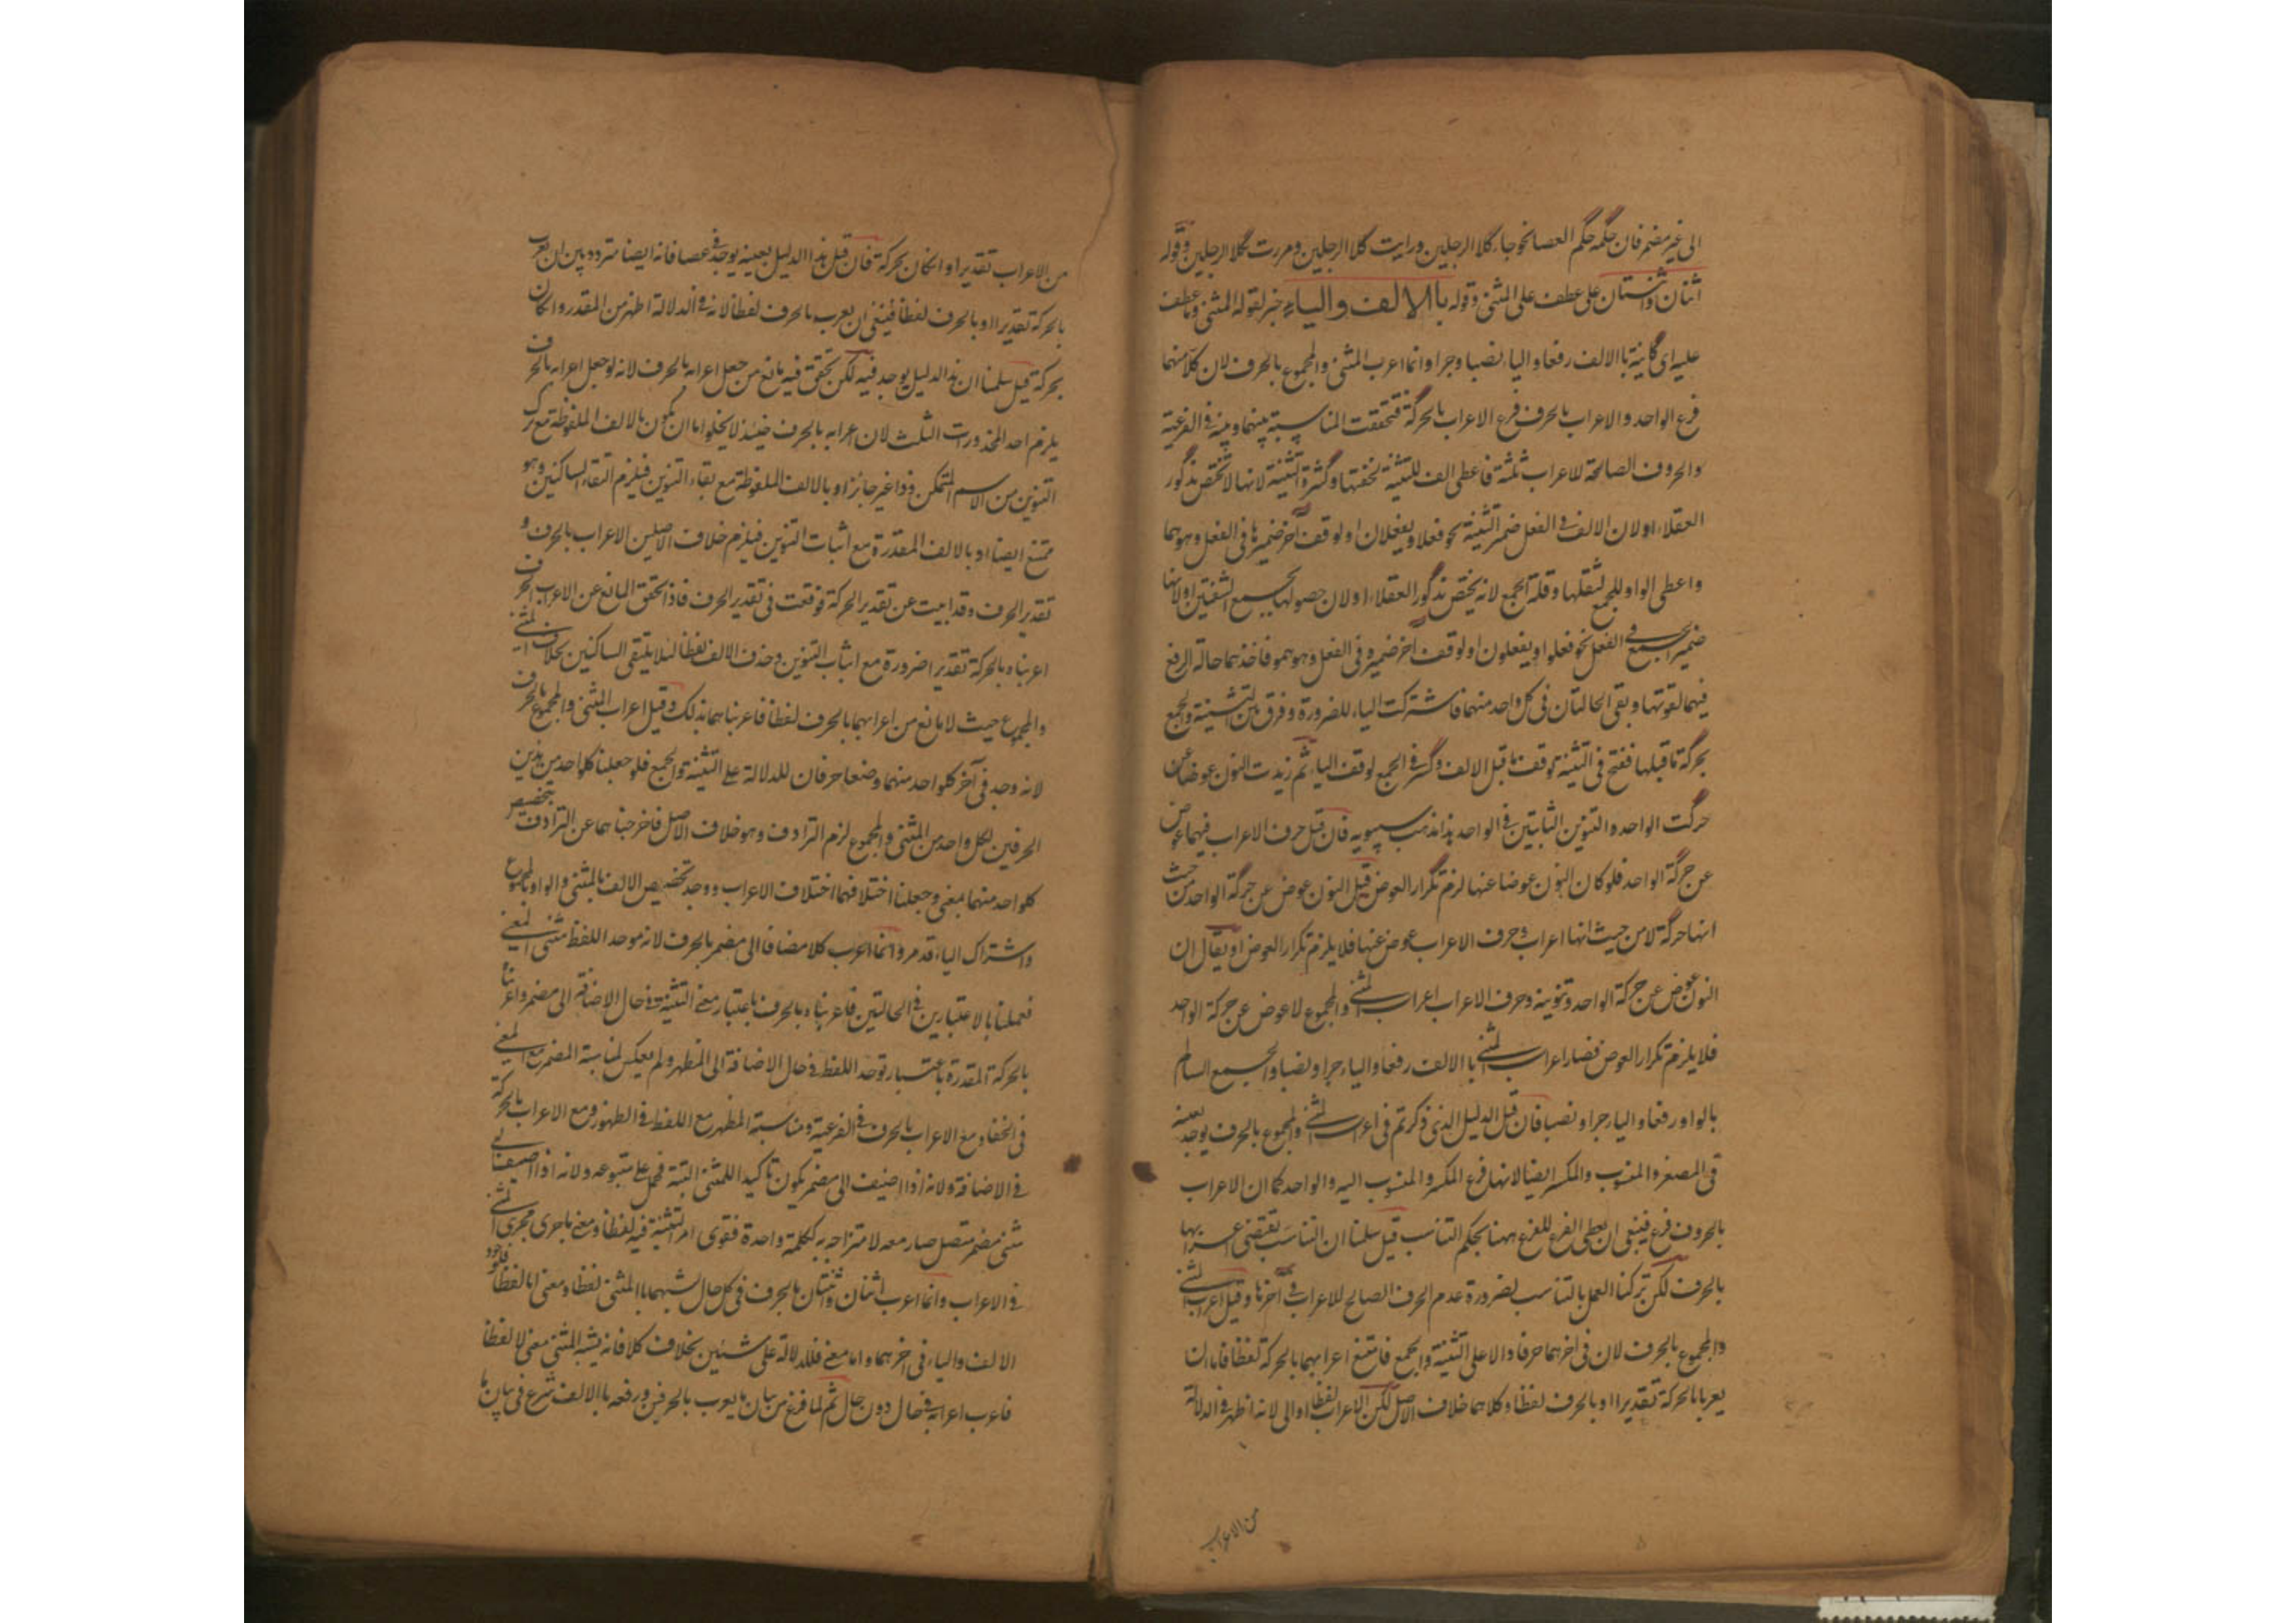 الى غير مضمر فان حكمه حكم العصا نحو جاء كلا الرجلين ورايت كلا الرجلين ومررت بكلا الرجلين وقوله
اثنان واثنتان على عطف على المثنى وقوله بالالف والياء خبر لقوله المثنى وما عطف
عليه اى كاينة بالالف رفعا والياء نصبا وجرا وانما اعرب المثنى والمجموع بالحرف لان كلا منهما
فرع الواحد والاعراب بالحرف فرع الاعراب بالحركة فتحققت المناسبة بينهما وبينه فى الفرعية
والحروف الصالحة للاعراب ثلثة فاعطى الف للتثنية لخفتها وكثرة التثنية لانها لا تختص بذكور
العقلاء او لان الالف فى الفعل ضمير التثنية نحو فعلا ويفعلان او لوقف آخر ضميرها فى الفعل وهو هما
واعطى الواو للجمع لثقلها وقلة الجمع لانه يختص بذكور العقلاء او لان حصولها بجمع الشفتين او لانها
ضمير الجمع فى الفعل نحو فعلوا ويفعلون او لوقف آخر ضميره فى الفعل وهو همو فاخذ هما حالة الرفع
فيهما لقوتها وبقى الحالتان فى كل واحد منهما فاشتركت الياء للضرورة وفرق بين التثنية والجمع
بحركة ما قبلها ففتح فى التثنية لوقف ما قبل الالف وكسر فى الجمع لوقف الياء ثم زيدت النون عوضا عن
حركت الواحد والتنوين الثابتين فى الواحد هذا مذهب سيبويه فان قيل حرف الاعراب فيهما عوض
عن حركة الواحد فلو كان النون عوضا عنها لزم تكرار العوض قيل النون عوض عن حركة الواحد من حيث
انها حركة لا من حيث انها اعراب وحرف الاعراب عوض عنها فلا يلزم تكرار العوض او يقال ان
النون عوض عن حركة الواحد وتنوينه وحرف الاعراب اعراب المثنى والمجموع لا عوض عن حركة الواحد
فلا يلزم تكرار العوض فصار اعراب المثنى بالالف رفعا والياء جرا ونصبا والجمع السالم
بالواو رفعا والياء جرا ونصبا فان قيل الدليل الذى ذكرتم فى اعراب المثنى والمجموع بالحرف يوجد بعينه
فى المصغر والمنسوب والمكسر ايضا لانها فرع المكبر والمنسوب اليه والواحد كما ان الاعراب
بالحروف فرع فينبغى ان يعطى الفرع للفرع ههنا بحكم التناسب قيل سلمنا ان التناسب يقتضى اعرابها
بالحرف لكن تركنا العمل بالتناسب لضرورة عدم الحرف الصالح للاعراب فى آخرها وقيل اعرب المثنى
والمجموع بالحرف لان فى آخرهما حرفا دالا على التثنية والجمع فامتنع اعرابهما بالحركة لفظا فاما ان
يعربا بالحركة تقديرا او بالحرف لفظا وكلاهما خلاف الاصل لكن الاعراب لفظا اولى لانه اظهر فى الدلالة
من الاعراب
من الاعراب تقديرا وان كان بحركة فان قيل هذا الدليل بعينه يوجد فى عصا فانه ايضا متردد بين ان يعرب
بالحركة تقديرا او بالحرف لفظا فينبغى ان يعرب بالحرف لفظا لانه فى الدلالة اظهر من المقدر وان كان
بحركة قيل سلمنا ان هذا الدليل يوجد فيه لكن تحقق فيه مانع من جعل اعرابه بالحرف لانه لو جعل اعرابه بالحرف
يلزم احد المحذورات الثلث لان اعرابه بالحرف حينئذ لا يخلو اما ان يكون بالالف الملفوظة مع ترك
التنوين من الاسم المتمكن وذا غير جائز او بالالف الملفوظة مع بقاء التنوين فيلزم التقاء الساكنين وهو
ممتنع ايضا او بالالف المقدرة مع اثبات التنوين فيلزم خلاف الاصلين الاعراب بالحرف و
تقدير الحرف وقد ابيت عن تقدير الحركة فوقعت فى تقدير الحرف فاذا تحقق المانع عن الاعراب بالحرف
اعربناه بالحركة تقديرا ضرورة مع اثبات التنوين وحذف الالف لفظا لئلا يلتقى الساكنين بخلاف المثنى
والمجموع حيث لا مانع من اعرابهما بالحرف لفظا فاعربناهما بذلك وقيل اعراب المثنى والمجموع بالحرف
لانه وجد فى آخر كلواحد منهما وضعا حرفان للدلالة على التثنية والجمع فلو جعلنا كلواحد من هذين
الحرفين لكل واحد من المثنى والمجموع لزم الترادف وهو خلاف الاصل فاخرجناهما عن الترادف بتخصيص
كلواحد منهما بمعنى وجعلنا اختلافهما اختلاف الاعراب ووجه تخصيص الالف بالمثنى والواو بالمجموع
واشتراك الياء قد مر وانما اعرب كلا مضافا الى مضمر بالحرف لانه موحد اللفظ مثنى المعنى
فعملنا بالاعتبارين فى الحالتين فاعربناه بالحرف باعتبار معنى التثنية فى حال الاضافة الى مضمر واعربناه
بالحركة المقدرة باعتبار توحد اللفظ فى حال الاضافة الى المظهر ولم يعكس لمناسبة المضمر مع المعنى
فى الخفاء ومع الاعراب بالحرف فى الفرعية ومناسبة المظهر مع اللفظ فى الظهور ومع الاعراب بالحركة
فى الاضافة ولانه اذا اضيف الى مضمر يكون تاكيدا للمثنى البتة فحمل على متبوعه ولانه اذا اضيف الى
مثنى مضمر متصل صار معه لامتزاجه به ككلمة واحدة فقوى امر التثنية فيه لفظا ومعنى فاجرى مجرى المثنى
فى الاعراب وانما اعرب اثنان واثنتان بالحرف فى كل حال لشبههما بالمثنى لفظا ومعنى اما لفظا فلوجود
الالف والياء فى آخرهما واما معنى فللدلالة على شيئين بخلاف كلا فانه يشبه المثنى معنى لا لفظا
فاعرب اعرابه فى حال دون حال ثم لما فرغ من بيان ما يعرب بالحرفين ورفعه بالالف شرع فى بيان ما